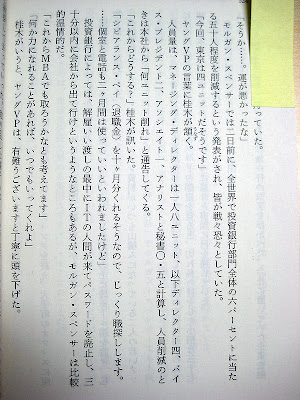 持っていた。
「そうか……。運が悪かったな」
モルガン・スペンサーでは二日前に、全世界で投資銀行部門全体の六パーセントに当た
る五十人程度を削減するという発表がされ、皆が戦々恐々としていた。
「今回、東京は四ユニットだそうです」
ヤングVPの言葉に桂木が頷く。
人員量は、マネージング・ディレクターは一人八ユニット、以下ディレクター四、バイ
ス・プレジデント二、アソシエイト一、アナリストと秘書〇・五と計算し、人員削減のと
きは本社から「何ユニット削れ」と通告してくる。
「これからどうする？」桂木が訊いた。
「シビアランス・ペイ（退職金）を十ヶ月分くれるそうなので、じっくり職探しします。
……個室と電話も二ヶ月間は使っていいといわれましたし」
投資銀行によっては、解雇いい渡しの最中にITの人間が来てパスワードを廃止し、三
十分以内に会社から出て行けというようなところもあるが、モルガン・スペンサーは比較
的温情的だ。
「これからMBAでも取ろうかなとも考えてます」
「何か力になれることがあれば、いつでもいってくれよ」
桂木がいうと、ヤングVPは、有難うございますと丁寧に頭を下げた。